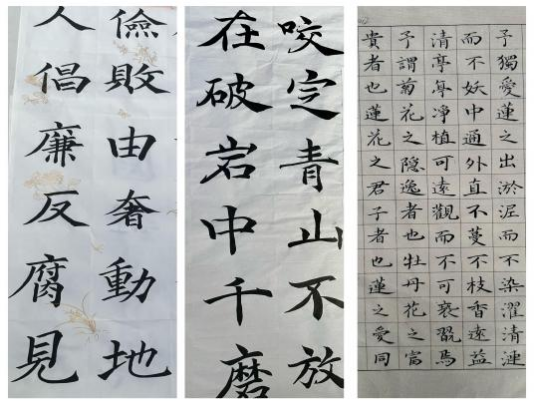 儉敗由奢動地
人倡廉反腐見
咬定青山不放
在破岩中千磨
予獨愛蓮之出淤泥而不染濯清漣
而不妖中通外直不蔓不枝香遠益
清亭亭净植可遠觀而不可亵翫焉
予謂菊花之隐逸者也牡丹花之富
貴者也蓮花之君子者也蓮之愛同